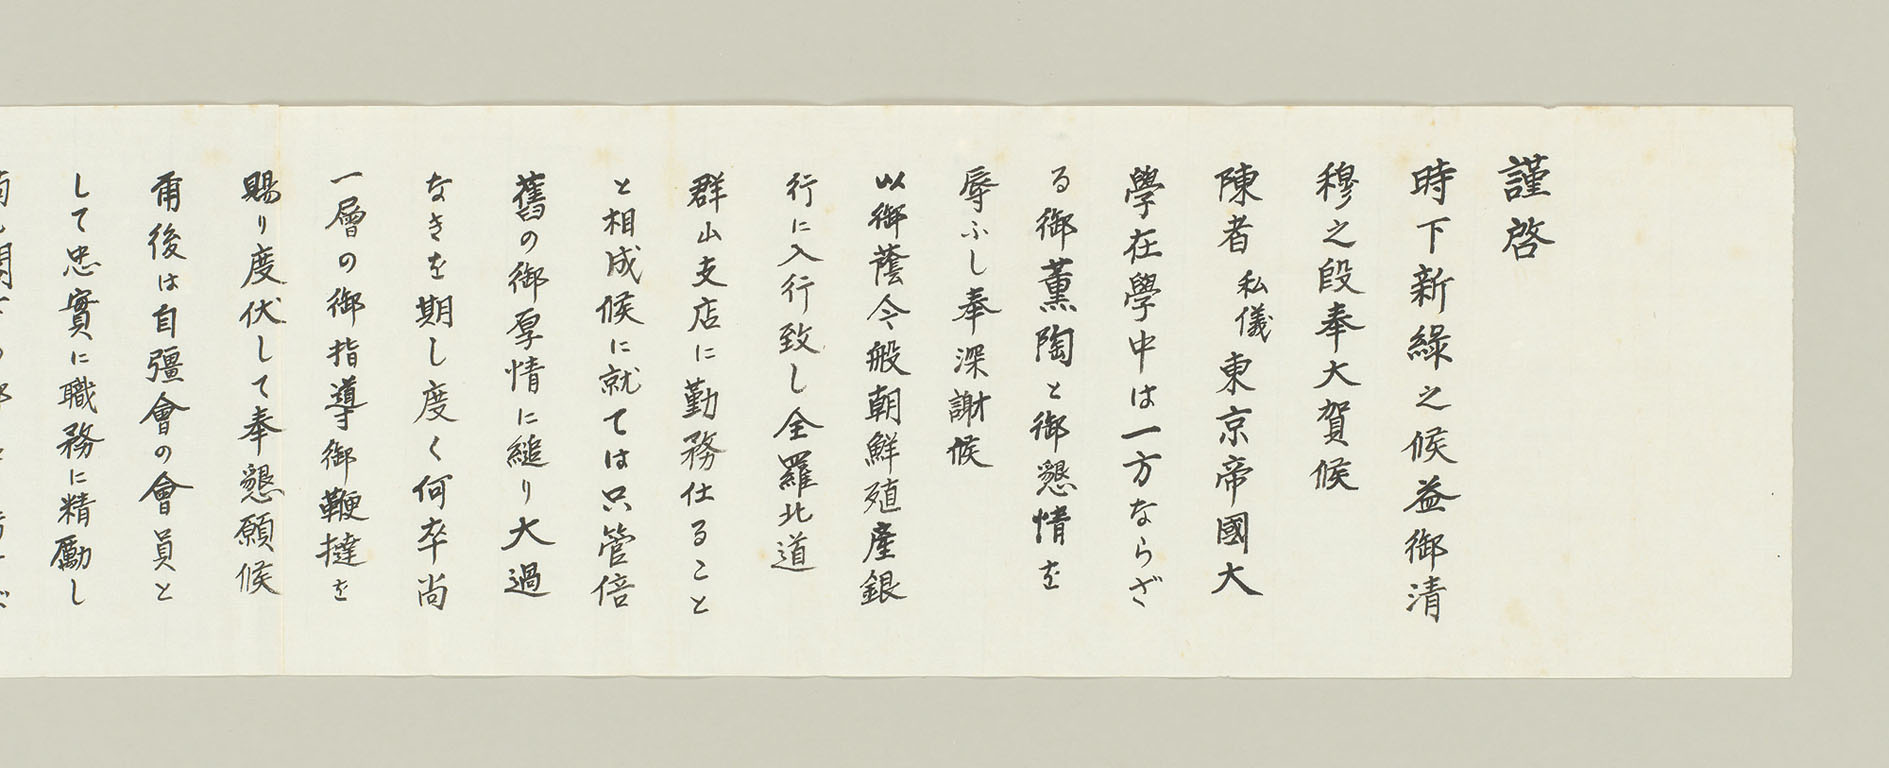 謹啓
時下新緑之候益御清
穆之段奉大賀候
陳者私儀東京帝國大
學在學中は一方ならざ
る御薫陶と御懇情を
辱ふし奉深謝候
以御蔭今般朝鮮殖產銀
行に入行致し全羅北道
群山支店に勤務仕ること
と相成候に就ては只管倍
舊の御厚情に縋り大過
なきを期し度く何卒尚
一層の御指導御鞭撻を
賜り度伏して奉懇願候
甭後は自彊會の會員と
して忠實に職務に精勵し